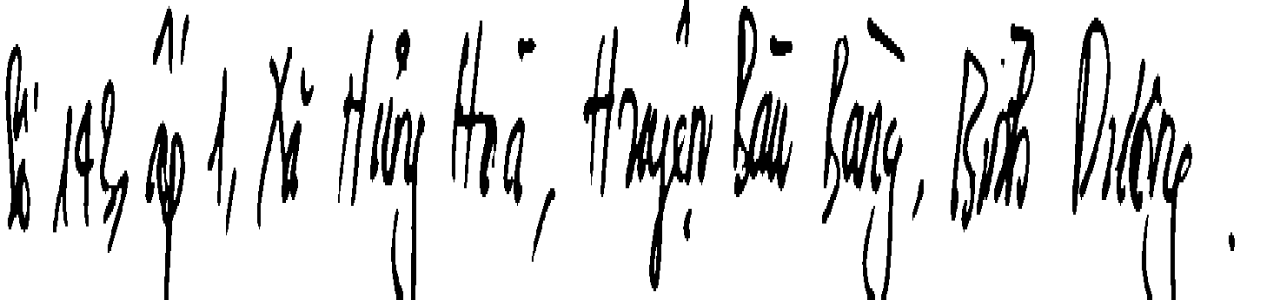 Số 143, ấp 1, Xã Hưng Hoà, Huyện Bàu Bàng, Bình Dương.